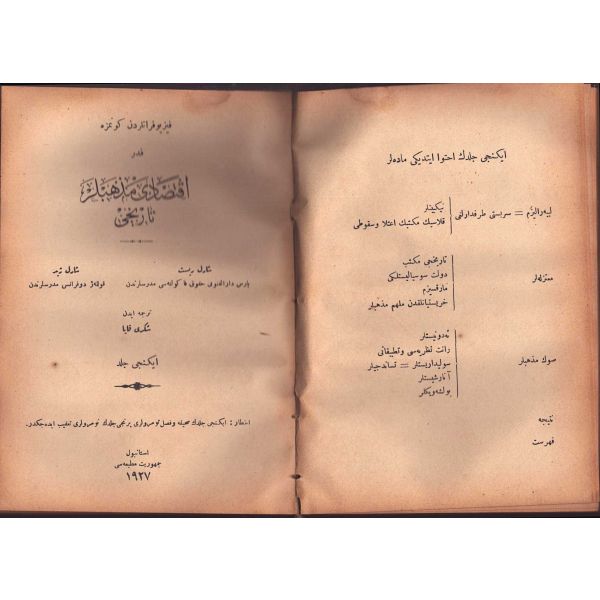 فیزیوقراتلردن كونمزه
قدر
اقتصادی مذهبلر
تاریخی
شارل ژید
قوللژ دوفرانس مدرسلرندن
شارل ریست
پارس دارالفنونی حقوق فاكولته‌سی مدرسلرندن
ترجمه ایدن
شكری قایا
ایكنجی جلد
اخطار : ایكنجی جلدك صحیفه و فصل نومرولری برنجی جلدك نومرولری تعقیب ایده‌جكدر.
استانبول
جمهوریت مطبعه‌سی
١٩٢٧
ایكنجی جلدك احتوا ایتدیكی ماده‌لر
لیبه‌رالیزم = سربستی طرفدارلغی
نیكبینلر
قلاسیك مكتبك اعتلا و سقوطی
معتزله‌لر
تاریخجی مكتب
دولت سوسیالیستلكی
ماركسیزم
خریستیانلقدن ملهم مذهبلر
صوك مذهبلر
هدونیستلر
رانت نظریه‌سی و تطبیقاتی
سولیداریستلر = تساندجیلر
آنارشیستلر
بولشه‌ویكلر
نتیجه
فهرست